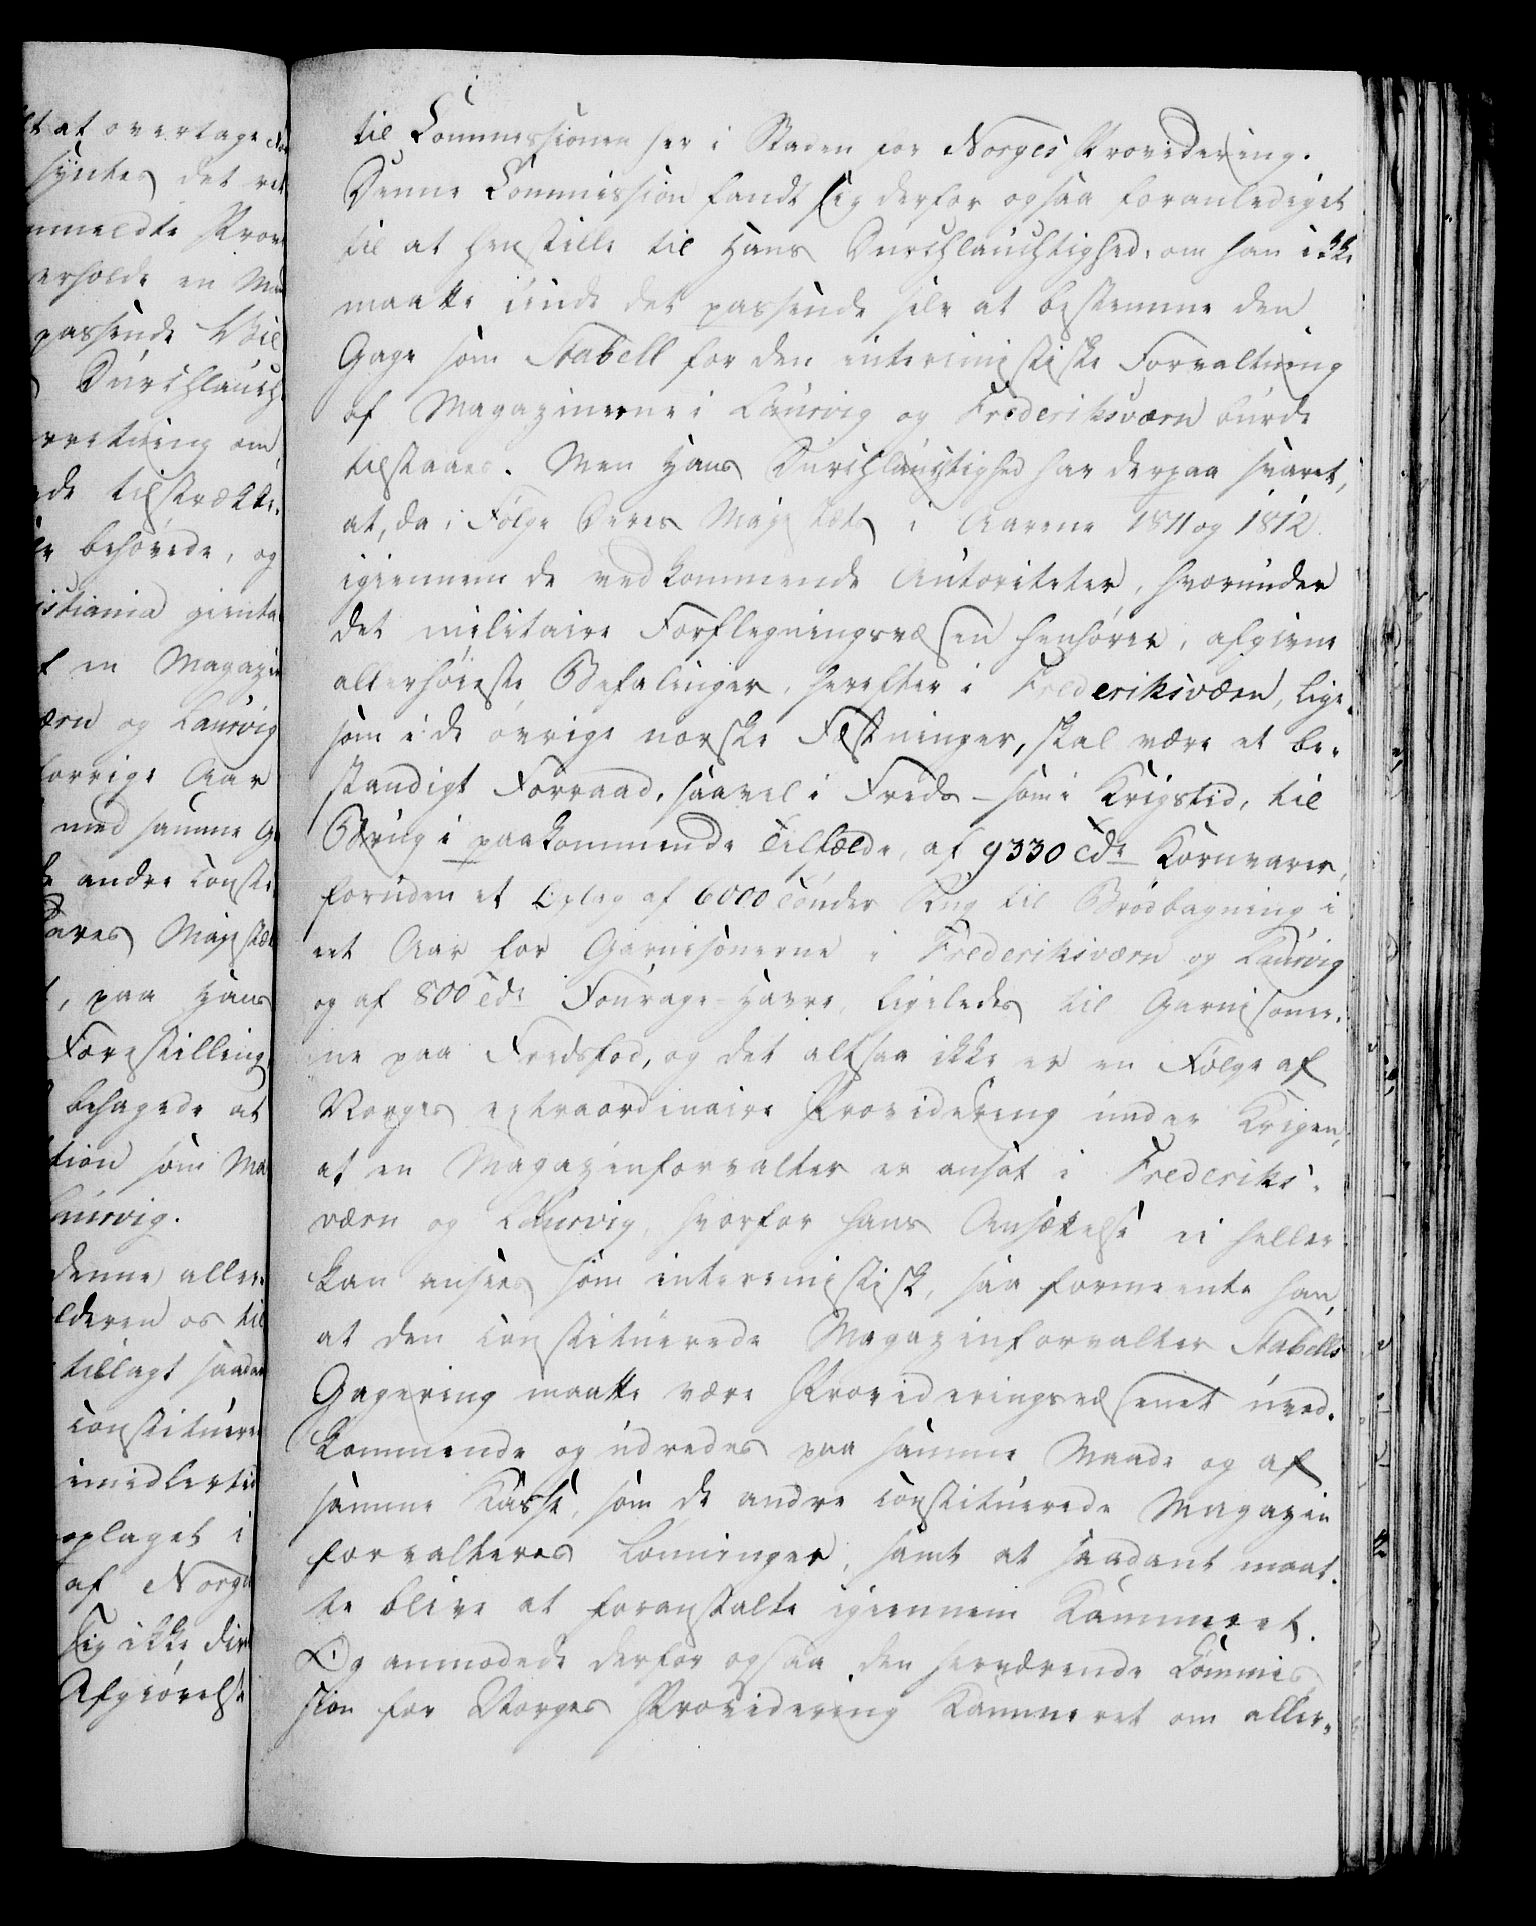 lt at overtage
syntes det
nmeldte Prov
erholde en
passende
Durchlauch
rretning om
de tilstrække-
behøvede, og
istiania gienta
en Magazin
ærn og Laurvig
forrige Aar
med samme
andre const
Deres Majestæt
, paa Hans
Forestilling
behagede at
tion som Ma
Laurvig.
denne aller-
lderen os til
tillagt saadan
constituere
imidlertid
oplaget i
af Norge
sig ikke dir
Afgiørelse
til Commissionen her i Staden for Norges Providering.
Denne Commission fandt sig derfor ogsaa foranlediget
til at henstille til Hans Durchlauchtighed, om han ikke
maatte finde det passende selv at bestemme den
Gage som Stabell for den interimistiske Forvaltning
af Magazinerne i Laurvig og Frederiksværn burde
tilstaaes. Men Hans Durchlauchtighed har derpaa svaret,
at, da i Følge Deres Majestæts i Aarene 1811 og 1812
igiennem de vedkommende Autoriteter, hvorunder
det militaire Forflegningsvæsen henhører, afgivne
allerhøieste Befalinger, herefter i Frederiksværn, lige-
som i de øvrige norske Fæstninger, skal være et be-
standigt Forraad, saavel i Freds- som i Krigstid, til
Brug i paakommende Tilfælde, af 9330 Tdr Kornvarer,
foruden et Oplag af 6000 Tønder Rug til Brødbagning i
eet Aar for Garnisonerne i Frederiksværn og Laurvig
og af 800 Tdr Fourage-Havre, ligeledes til Garnisoner-
ne paa Fredsfod, og det altsaa ikke er en Følge af
Norges extraordinaire Providering under Krigen,
at en Magazinforvalter er ansat i Frederiks-
værn og Laurvig, hvorfor hans Ansættelse ei heller
kan ansees som interimistisk, saa formeente han,
at den constituerede Magazinforvalter Stabells
Gagering maatte være Provideringsvæsenet uved-
kommende og udredes paa samme Maade og af
samme Kasse, som de andre constituerede Magazin
forvalteres Lønninger, samt at saadant maat-
te blive at foranstalte igiennem Kammeret.
Og anmodede derfor ogsaa den herværende Commis
sion for Norges Providering Kammeret om aller-